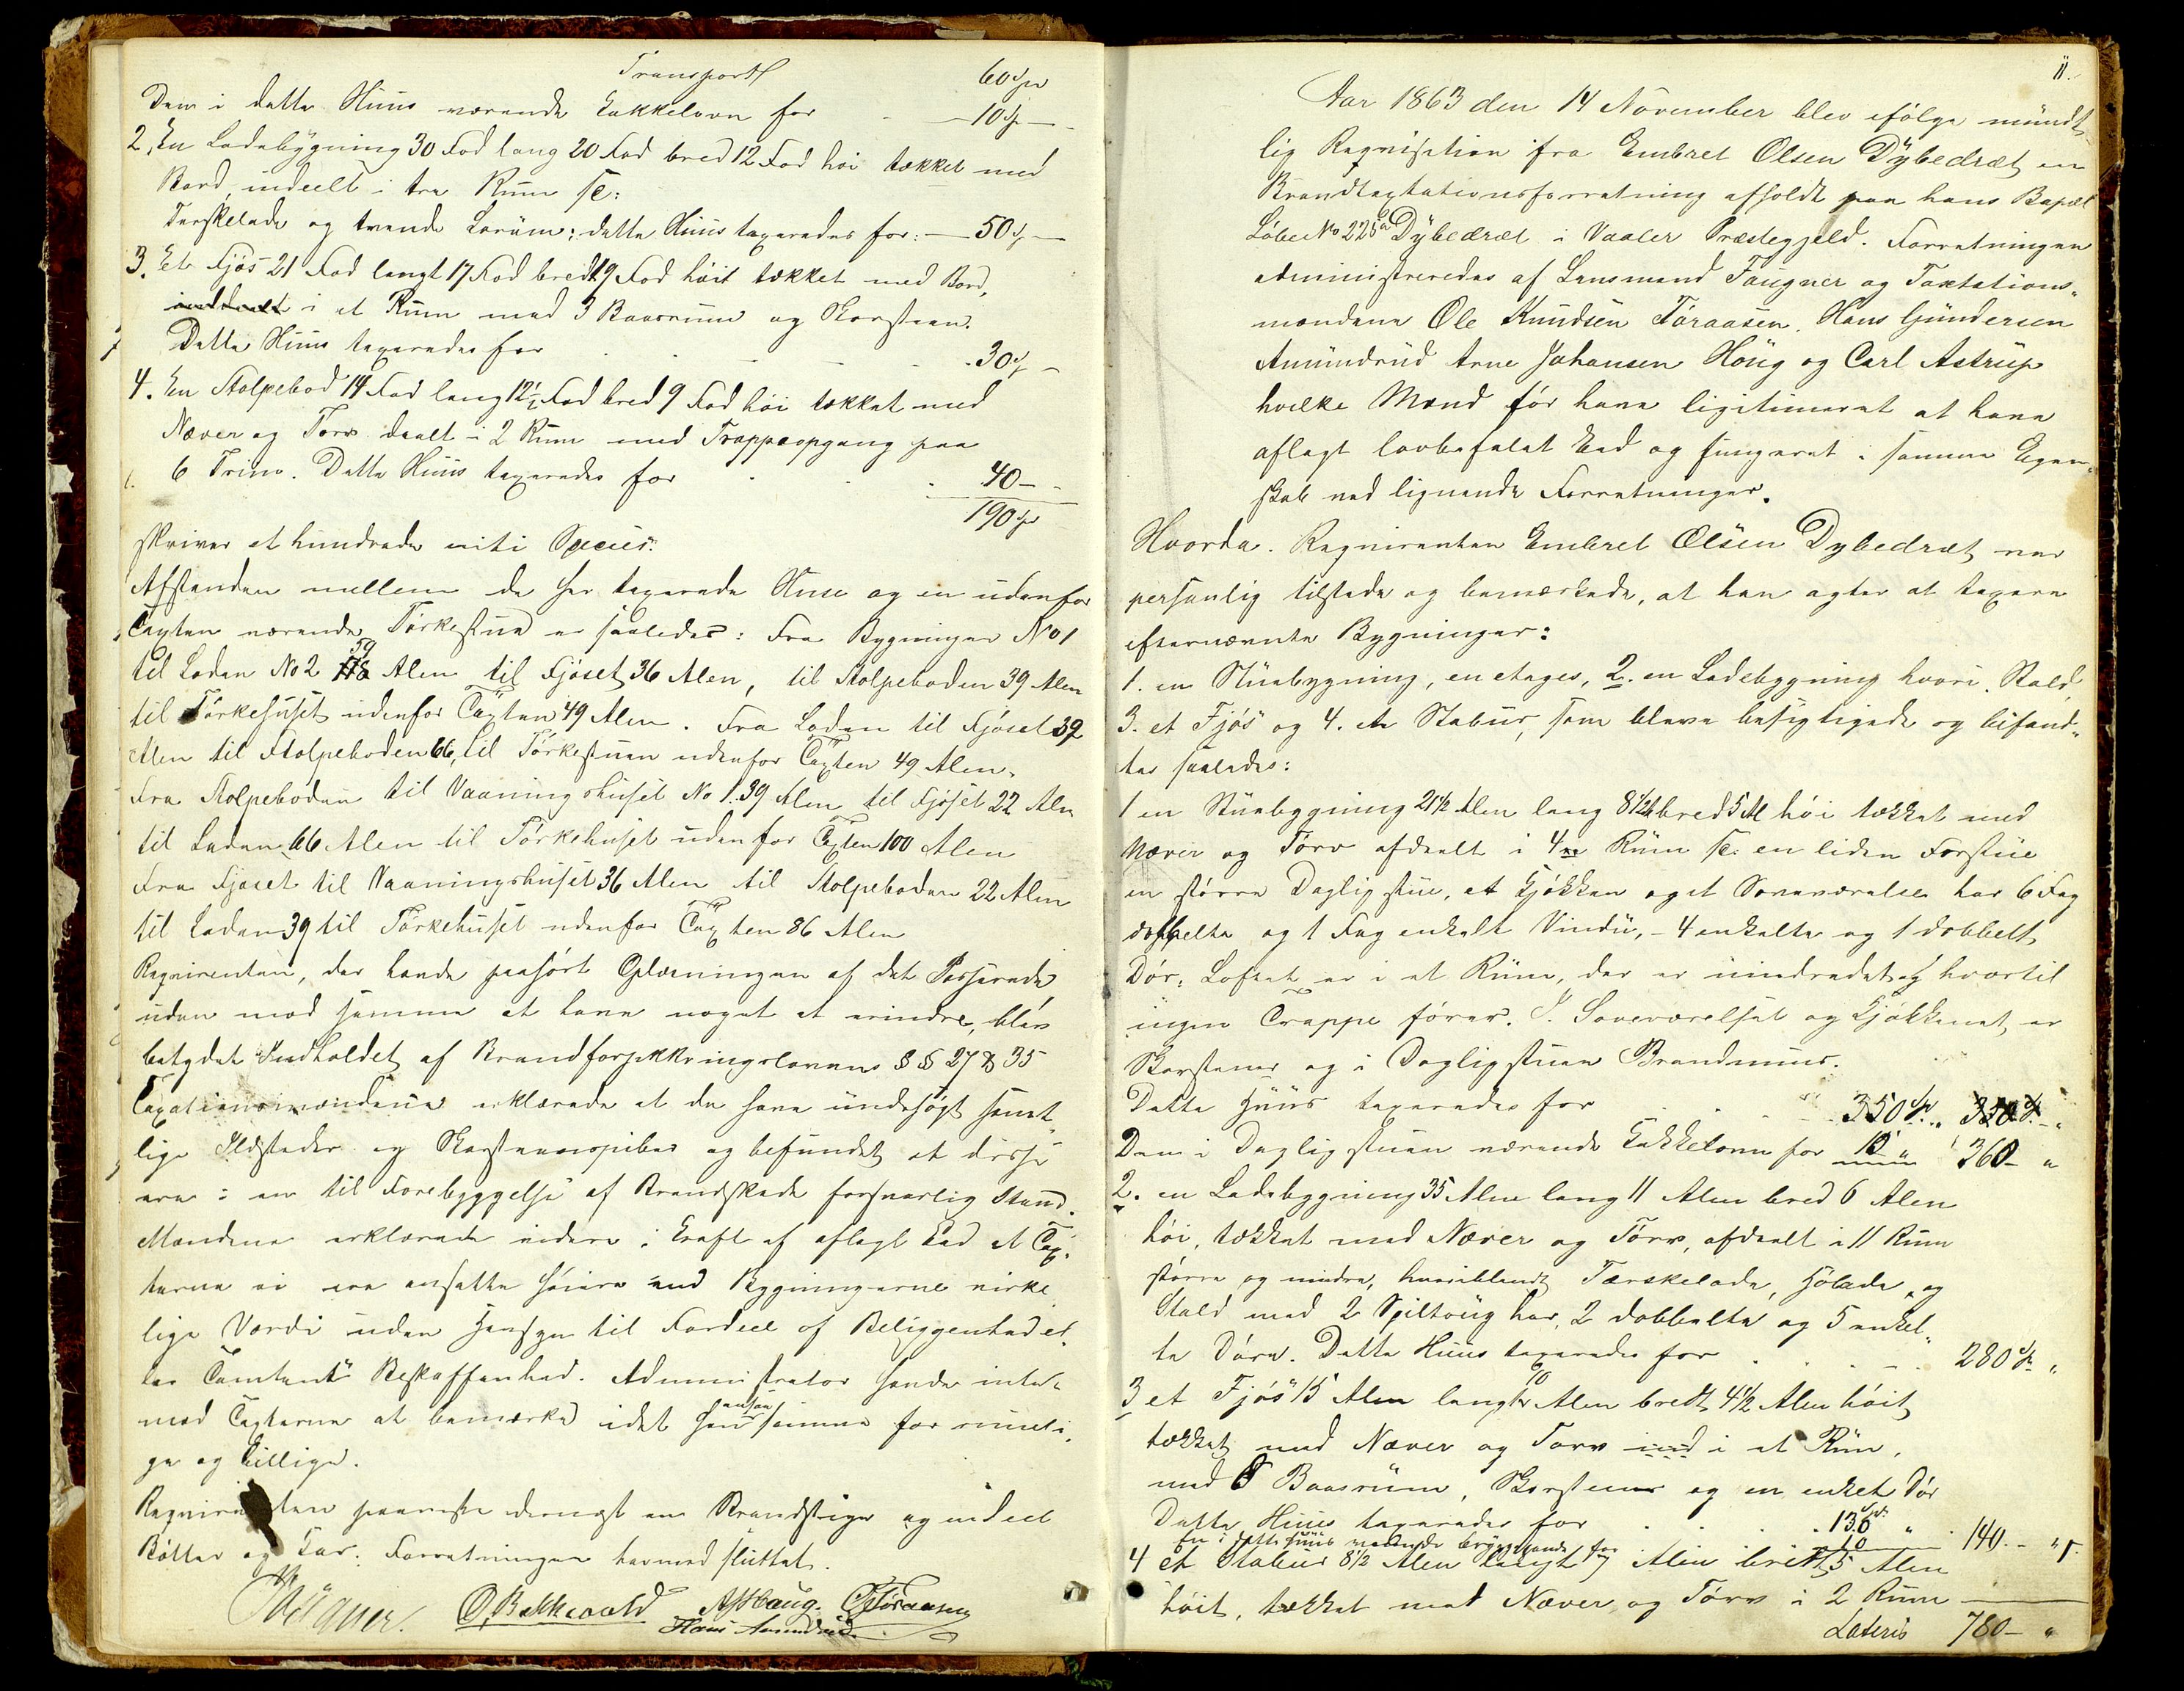 Transport 60 Spd
Den i dette Huus værende Kakkelovn for - 10 Sp -
2. En Ladebygning 30 Fod lang 20 Fod bred 12 Fod høi tækket med
Bord, indeelt i tre Rum sc:
Terskelade og tvende Larum; dette Huus taxeredes for: - 50 Sp -
3. Et Fjøs 21 Fod langt 17 Fod bredt 9 Fod høit tækket med Bord,
inddeelt i et Rum med 3 Baasrum og Skorsteen.
Dette Huus taxeredes for - 30 Sp -
4. En Stolpebod 14 Fod lang 12½ Fod bred 9 Fod høi tækket med
Næver og Torv deelt i 2 Rum med Trappeopgang paa
6 Trin. Dette Huus taxeredes for 40 - -
190 Spd
skriver et hundrede niti Species.
Afstanden mellem de her taxerede Huse og en udenfor
Taxten værende Tørkestue er saaledes: Fra Bygningen No 1
til Laden No 2 39 Alen til Fjøset 36 Alen, til Stolpeboden 39 Alen
til Tørkehuset udenfor Taxten 49 Alen. Fra Laden til Fjøset 39
Alen til Stolpeboden 66, til Tørkestuen udenfor Taxten 49 Alen.
Fra Stolpeboden til Vaaningshuset No 1. 39 Alen til Fjøset 22 Alen
til Laden 66 Alen til Tørkehuset udenfor Taxten 100 Alen
Fra Fjøset til Vaaningshuset 36 Alen til Stolpeboden 22 Alen
til Laden 39 til Tørkehuset udenfor Taxten 86 Alen
Reqvirenten, der havde paahørt Oplæsningen af det Passerede
uden mod samme at have noget at erindre, blev
betydet Indholdet af Brandforsikkringslovens §§ 27 & 35
Taxationsmændene erklærede at de have undersøgt samt-
lige Ildsteder og Skorsteenspiber og befundet at disse
ere i en til Forebyggelse af Brandskade forsvarlig Stand.
Mændene erklærede videre i Kraft af aflagt Eed at Tax-
terne ei ere ansatte høiere end Bygningerne virke-
lige Værdi uden Hensyn til Fordeel af Beliggenhed el-
ler Tomtens Beskaffenhed. Administrator havde intet
mod Taxterne at bemærke idet han ansaa samme for rimeli-
ge og billige.
Reqvirenten paaviste dernæst en Brandstige og endeel
Bøtter og Kar. Forretningen hermed sluttet.
Faugner. O. Bakkevold AJHaug. O Føraasen
Hans Amundrud
11.
Aar 1863 den 14 November blev ifølge mundt-
lig Reqvisition fra Embret Olsen Dybedræt en
Brandtaxtationsforretning afholdt paa hans Bopæl
Løbe No 225 Dybedræt i Vaaler Præstegjeld. Forretningen
administreredes af Lensmand Faugner og Taxtations-
mændene Ole Knudsen Føraasen, Hans Gundersen
Amundrud Arne Johansen Houg og Carl Astrup
hvilke Mænd før have ligitimeret at have
aflagt lovbefalet Eed og fungeret i samme Egen-
skab ved lignende Forretninger.
Hvorda. Reqvirenten Embret Olsen Dybedræt var
personlig tilstede og bemærkede, at han agter at taxere
efternævnte Bygninger:
1. en Stuebygning, en etages, 2. en Ladebygning hvori Stald,
3. et Fjøs og 4. et Stabur, som bleve besigtigede og befand-
tes saaledes:
1 en Stuebygning 21½ Alen lang 8½ Al bred 5 Al høi tækket med
Næver og Torv afdeelt i 4re Rum sc: en liden Forstue
en større Dagligstue, et Kjøkken og et Soveværelse har 6 Fag
dobbelte og 1 Fag enkelt Vindu, - 4 enkelte og 1 dobbelt
Dør; Loftet er i et Rum, der er uindredet og hvortil
ingen Trappe fører. I Soveværelset og Kjøkkenet er
Skorstener og i Dagligstuen Brandmuur.
Dette Huus taxeredes for 350 Sp. " 350 Sp. "
Den i Dagligstuen værende Kakkelovn for 10 " 360 - "
2. en Ladebygning 35 Alen lang 11 Alen bred 6 Alen
høi, tækket med Næver og Torv, afdeelt i 11 Rum
større og mindre, hvoriblandt Tærskelade, Hølade, og
Stald med 2 Spiltoug har 2 dobbelte og 5 enkel-
te Døre. Dette Huus taxeredes for 280 Sp "
3 et Fjøs 15 Alen langt 10 Alen bredt 4½ Alen høit
tækket med Næver og Torv ind i et Rum,
med 8 Baasrum, Skorsteen og en enkelt Dør
Dette Huus taxeredes for 130 Sp. "
En i dette Huus værende Bryggepande for 10 140. - "
4 et Stabur 8½ Alen langt 7 Alen bredt 5 Alen
høit, tækket med Næver og Torv i 2 Rum
Lateris 780 - "